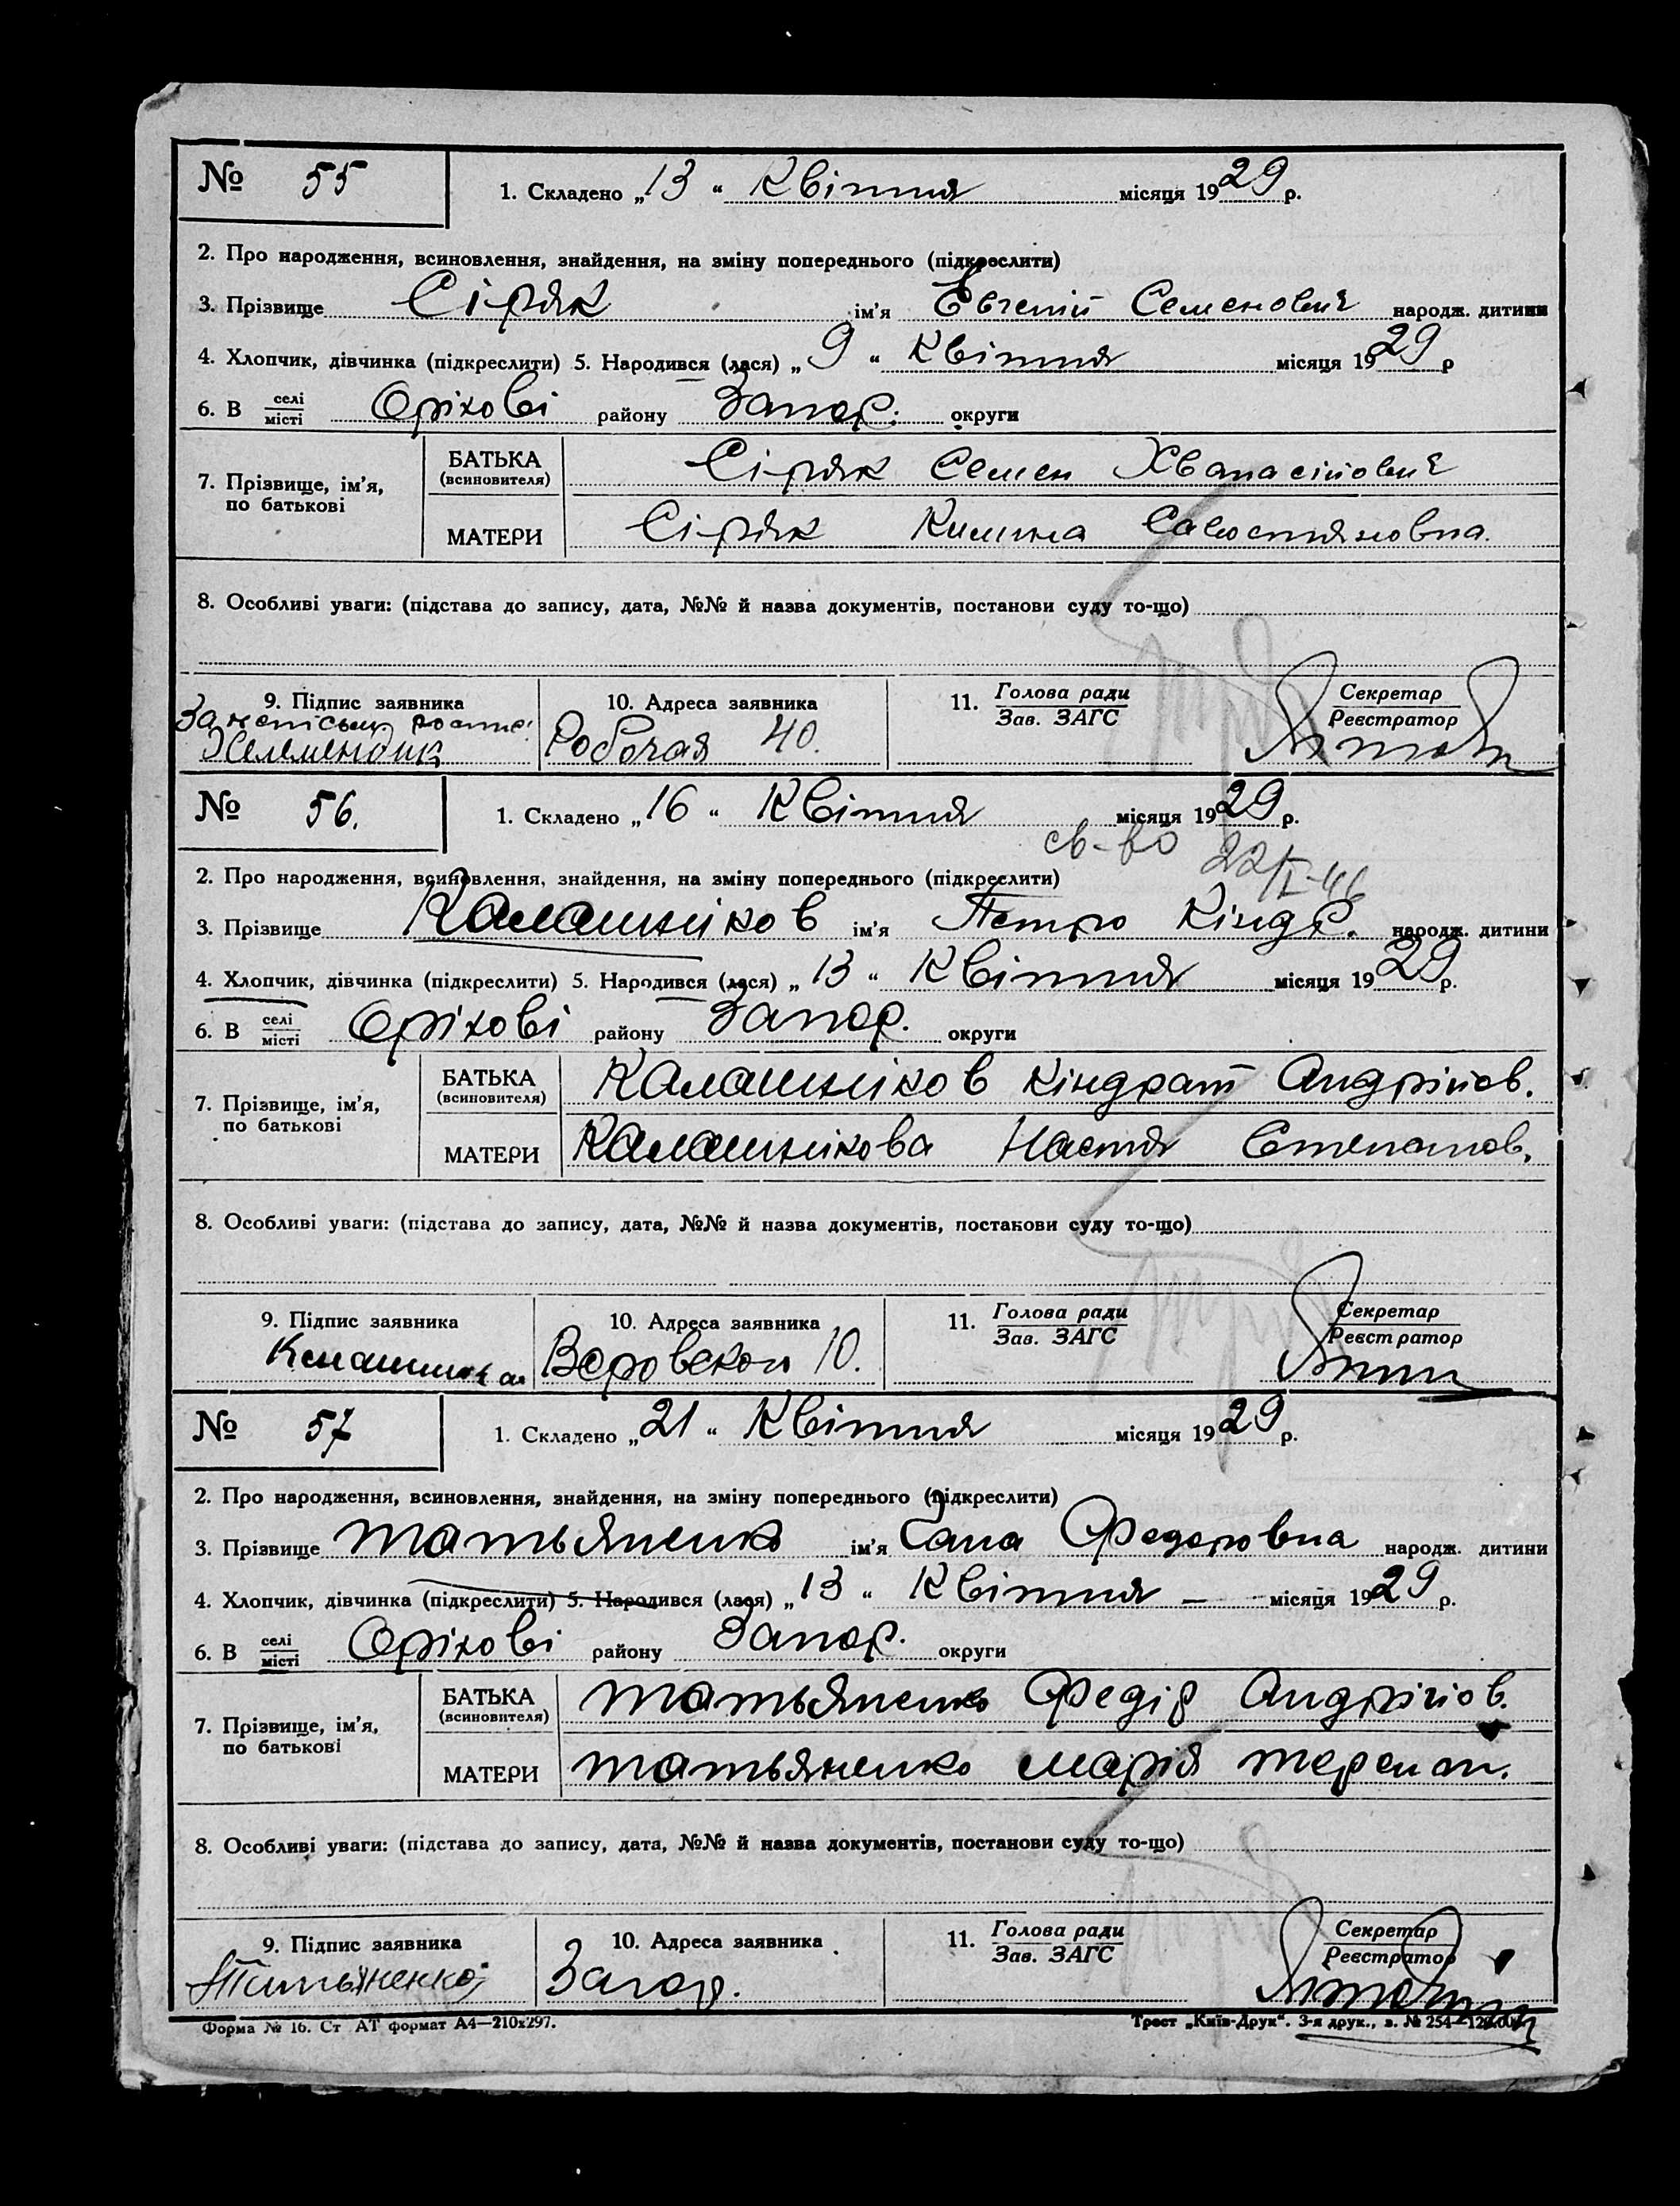 № 55
1. Складено „13“ Квітня місяця 1929 р.
2. Про народження, всиновлення, знайдення, на зміну попереднього (підкреслити)
3. Прізвище Сіряк ім'я Євгеній Семенович народж. дитини
4. Хлопчик, дівчинка (підкреслити) 5. Народився (лася) „9“ Квітня місяця 1929 р
6. В селі місті Оріхові району Запор. округи
7. Прізвище, ім'я, по батькові
БАТЬКА (всиновителя) Сіряк Семен Хванасійович
МАТЕРИ Сіряк Килина Савостяновна.
8. Особливі уваги: (підстава до запису, дата, №№ й назва документів, постанови суду то-що)
9. Підпис заявника
За
10. Адреса заявника
Робочая 40.
11. Голова ради Зав. ЗАГС
Секретар Реєстратор
№ 56.
1. Складено „16“ Квітня місяця 1929 р.
св-во 22/I-46
2. Про народження, всиновлення, знайдення, на зміну попереднього (підкреслити)
3. Прізвище Калашніков ім'я Петро Кіндр. народж. дитини
4. Хлопчик, дівчинка (підкреслити) 5. Народився (лася) „13“ Квітня місяця 1929 р.
6. В селі місті Оріхові району Запор. округи
7. Прізвище, ім'я, по батькові
БАТЬКА (всиновителя) Калашніков Кіндрат Андрійов.
МАТЕРИ Калашнікова Настя Степанов.
8. Особливі уваги: (підстава до запису, дата, №№ й назва документів, постанови суду то-що)
9. Підпис заявника
10. Адреса заявника
10.
11. Голова ради Зав. ЗАГС
Секретар Реєстратор
№ 57
1. Складено „21“ Квітня місяця 1929 р.
2. Про народження, всиновлення, знайдення, на зміну попереднього (підкреслити)
3. Прізвище Татьяненко ім'я Федоровна народж. дитини
4. Хлопчик, дівчинка (підкреслити) 5. Народився (лася) „13“ Квітня — місяця 1929 р.
6. В селі місті Оріхові району Запор. округи
7. Прізвище, ім'я, по батькові
БАТЬКА (всиновителя) Татьяненко Федір Андрійов.
МАТЕРИ Татьяненко Марія
8. Особливі уваги: (підстава до запису, дата, №№ й назва документів, постанови суду то-що)
9. Підпис заявника
Татьяненко
10. Адреса заявника
Загор.
11. Голова ради Зав. ЗАГС
Секретар Реєстратор
Форма № 16. Ст АТ формат А4—210х297.
Трест „Київ-Друк“. 3-я друк., з. № 254